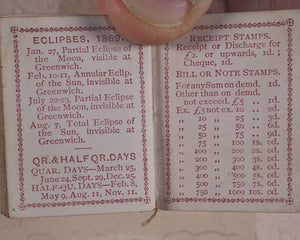 ECLIPSES, 1869.
Jan. 27, Partial Eclipse of
the Moon, visible at
Greenwich.
Feb. 10-11, Annular Eclip.
of the Sun, invisible at
Greenwich.
July 22-23, Partial Eclipse
of the Moon, invisible at
Greenwich.
Aug. 7, Total Eclipse of
the Sun, invisible at
Greenwich.
QR. & HALF QR. DAYS
QUAR. DAYS—March 25,
June 24, Sept. 29, Dec. 25.
HALF-QU. DAYS—Feb. 8,
May 9, Aug. 11, Nov. 11.
RECEIPT STAMPS.
Receipt or Discharge for
£2, or upwards, 1d.;
Cheque, 1d.
BILL OR NOTE STAMPS.
For any Sum on demd. 1d.
Other than on demd.
not exceed. £5 .. 1d.
Ex. £5 not ex. 10 .. 2d.
" 10 " 25 .. 3d.
" 25 " 50 .. 6d.
" 50 " 75 .. 9d.
" 75 " 100 .. 1s. 0d.
" 100 " 200 .. 2s. 0d.
" 200 " 300 .. 3s. 0d.
" 300 " 400 .. 4s. 0d.
" 400 " 500 .. 5s. 0d.
" 500 " 750 .. 7s. 6d.
" 750 " 1000 .. 10s. 0d.